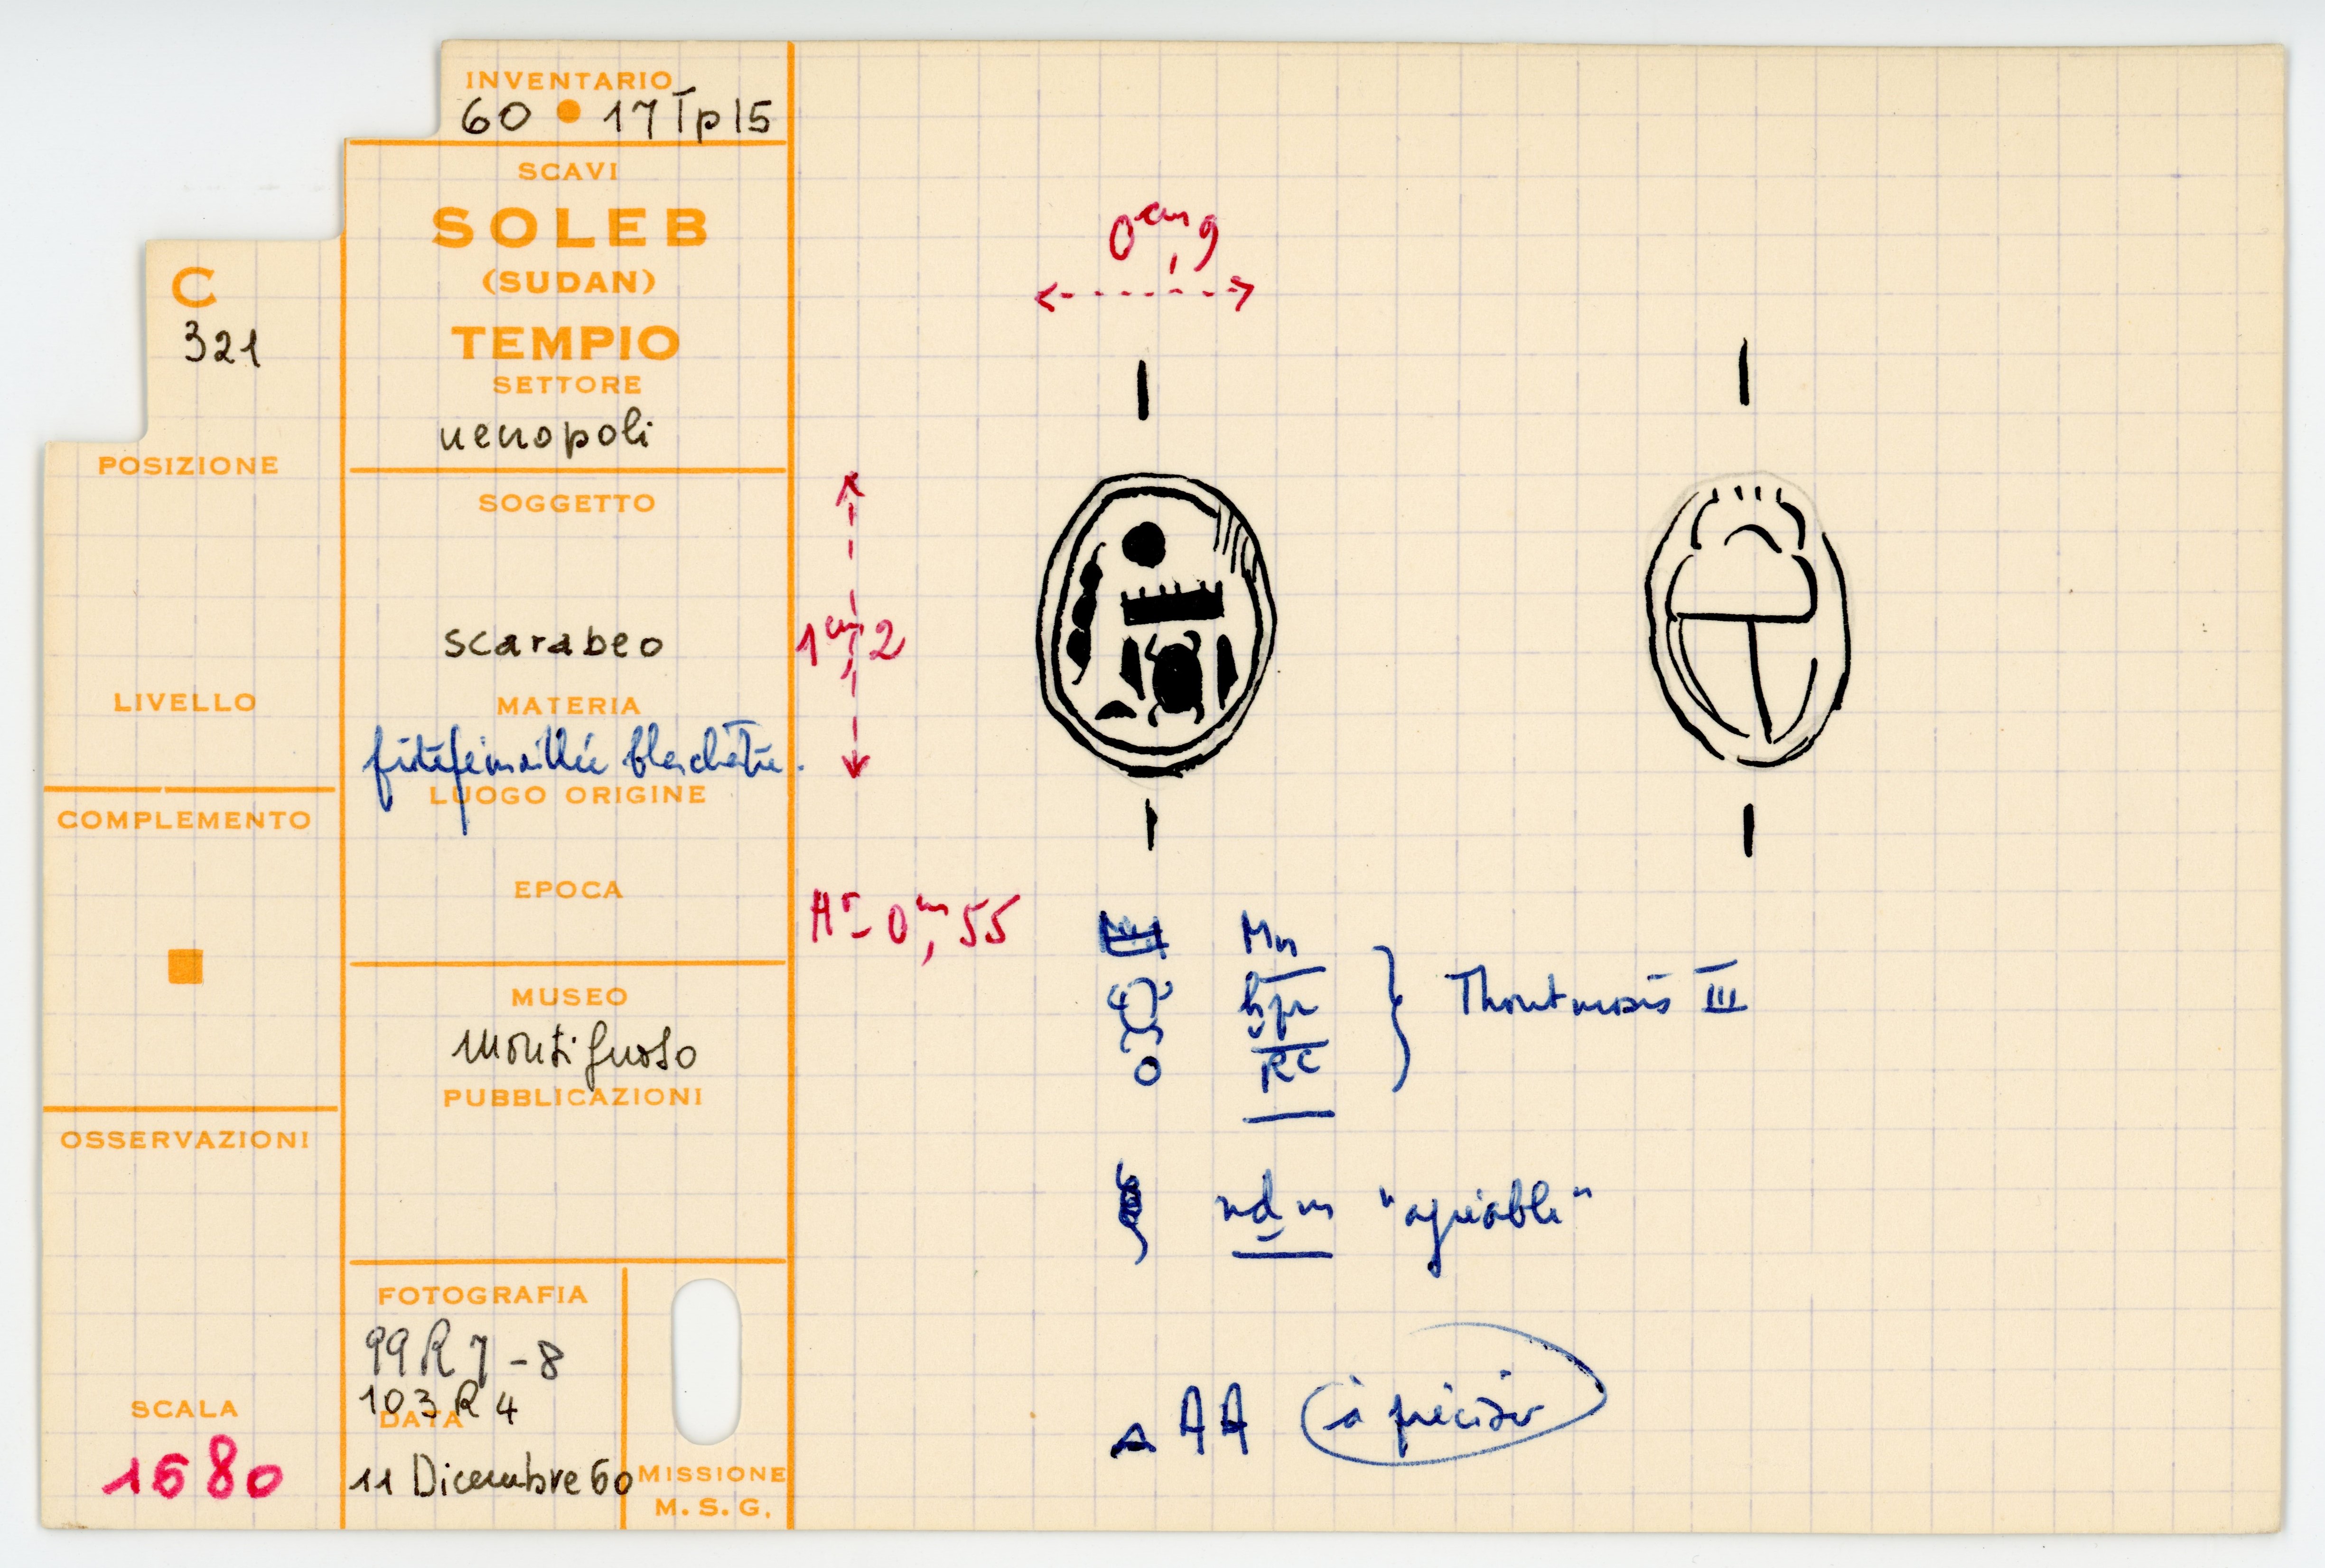 INVENTARIO
60 • 17 Tp 15
SCAVI
SOLEB
(SUDAN)
TEMPIO
SETTORE
necropoli
C
321
POSIZIONE
LIVELLO
COMPLEMENTO
OSSERVAZIONI
SCALA
1680
SOGGETTO
scarabeo
MATERIA
blanchâtre.
LUOGO ORIGINE
EPOCA
MUSEO
Montignoso
PUBBLICAZIONI
FOTOGRAFIA
99 R 7-8
103 R 4
DATA
11 Dicembre 60
MISSIONE
M. S. G.
0cm,9
1cm,2
Hr = 0cm,55
Mn
ḫpr
Rc
Thoutmosis III
nḏm "agréable"
AA à préciser